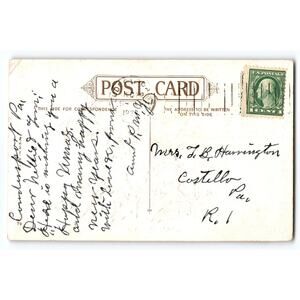 POST CARD
THIS SIDE FOR CORRESPONDENCE
THE ADDRESS TO BE WRITTEN
ON THIS SIDE
Coudersport Pa
Dear Nellie & Tom:
Here is wishing you a
Happy Xmas
and many happy
new years
with love from
Aunt
Mrs. T. B. Harrington
Costello
Pa.
R. 1